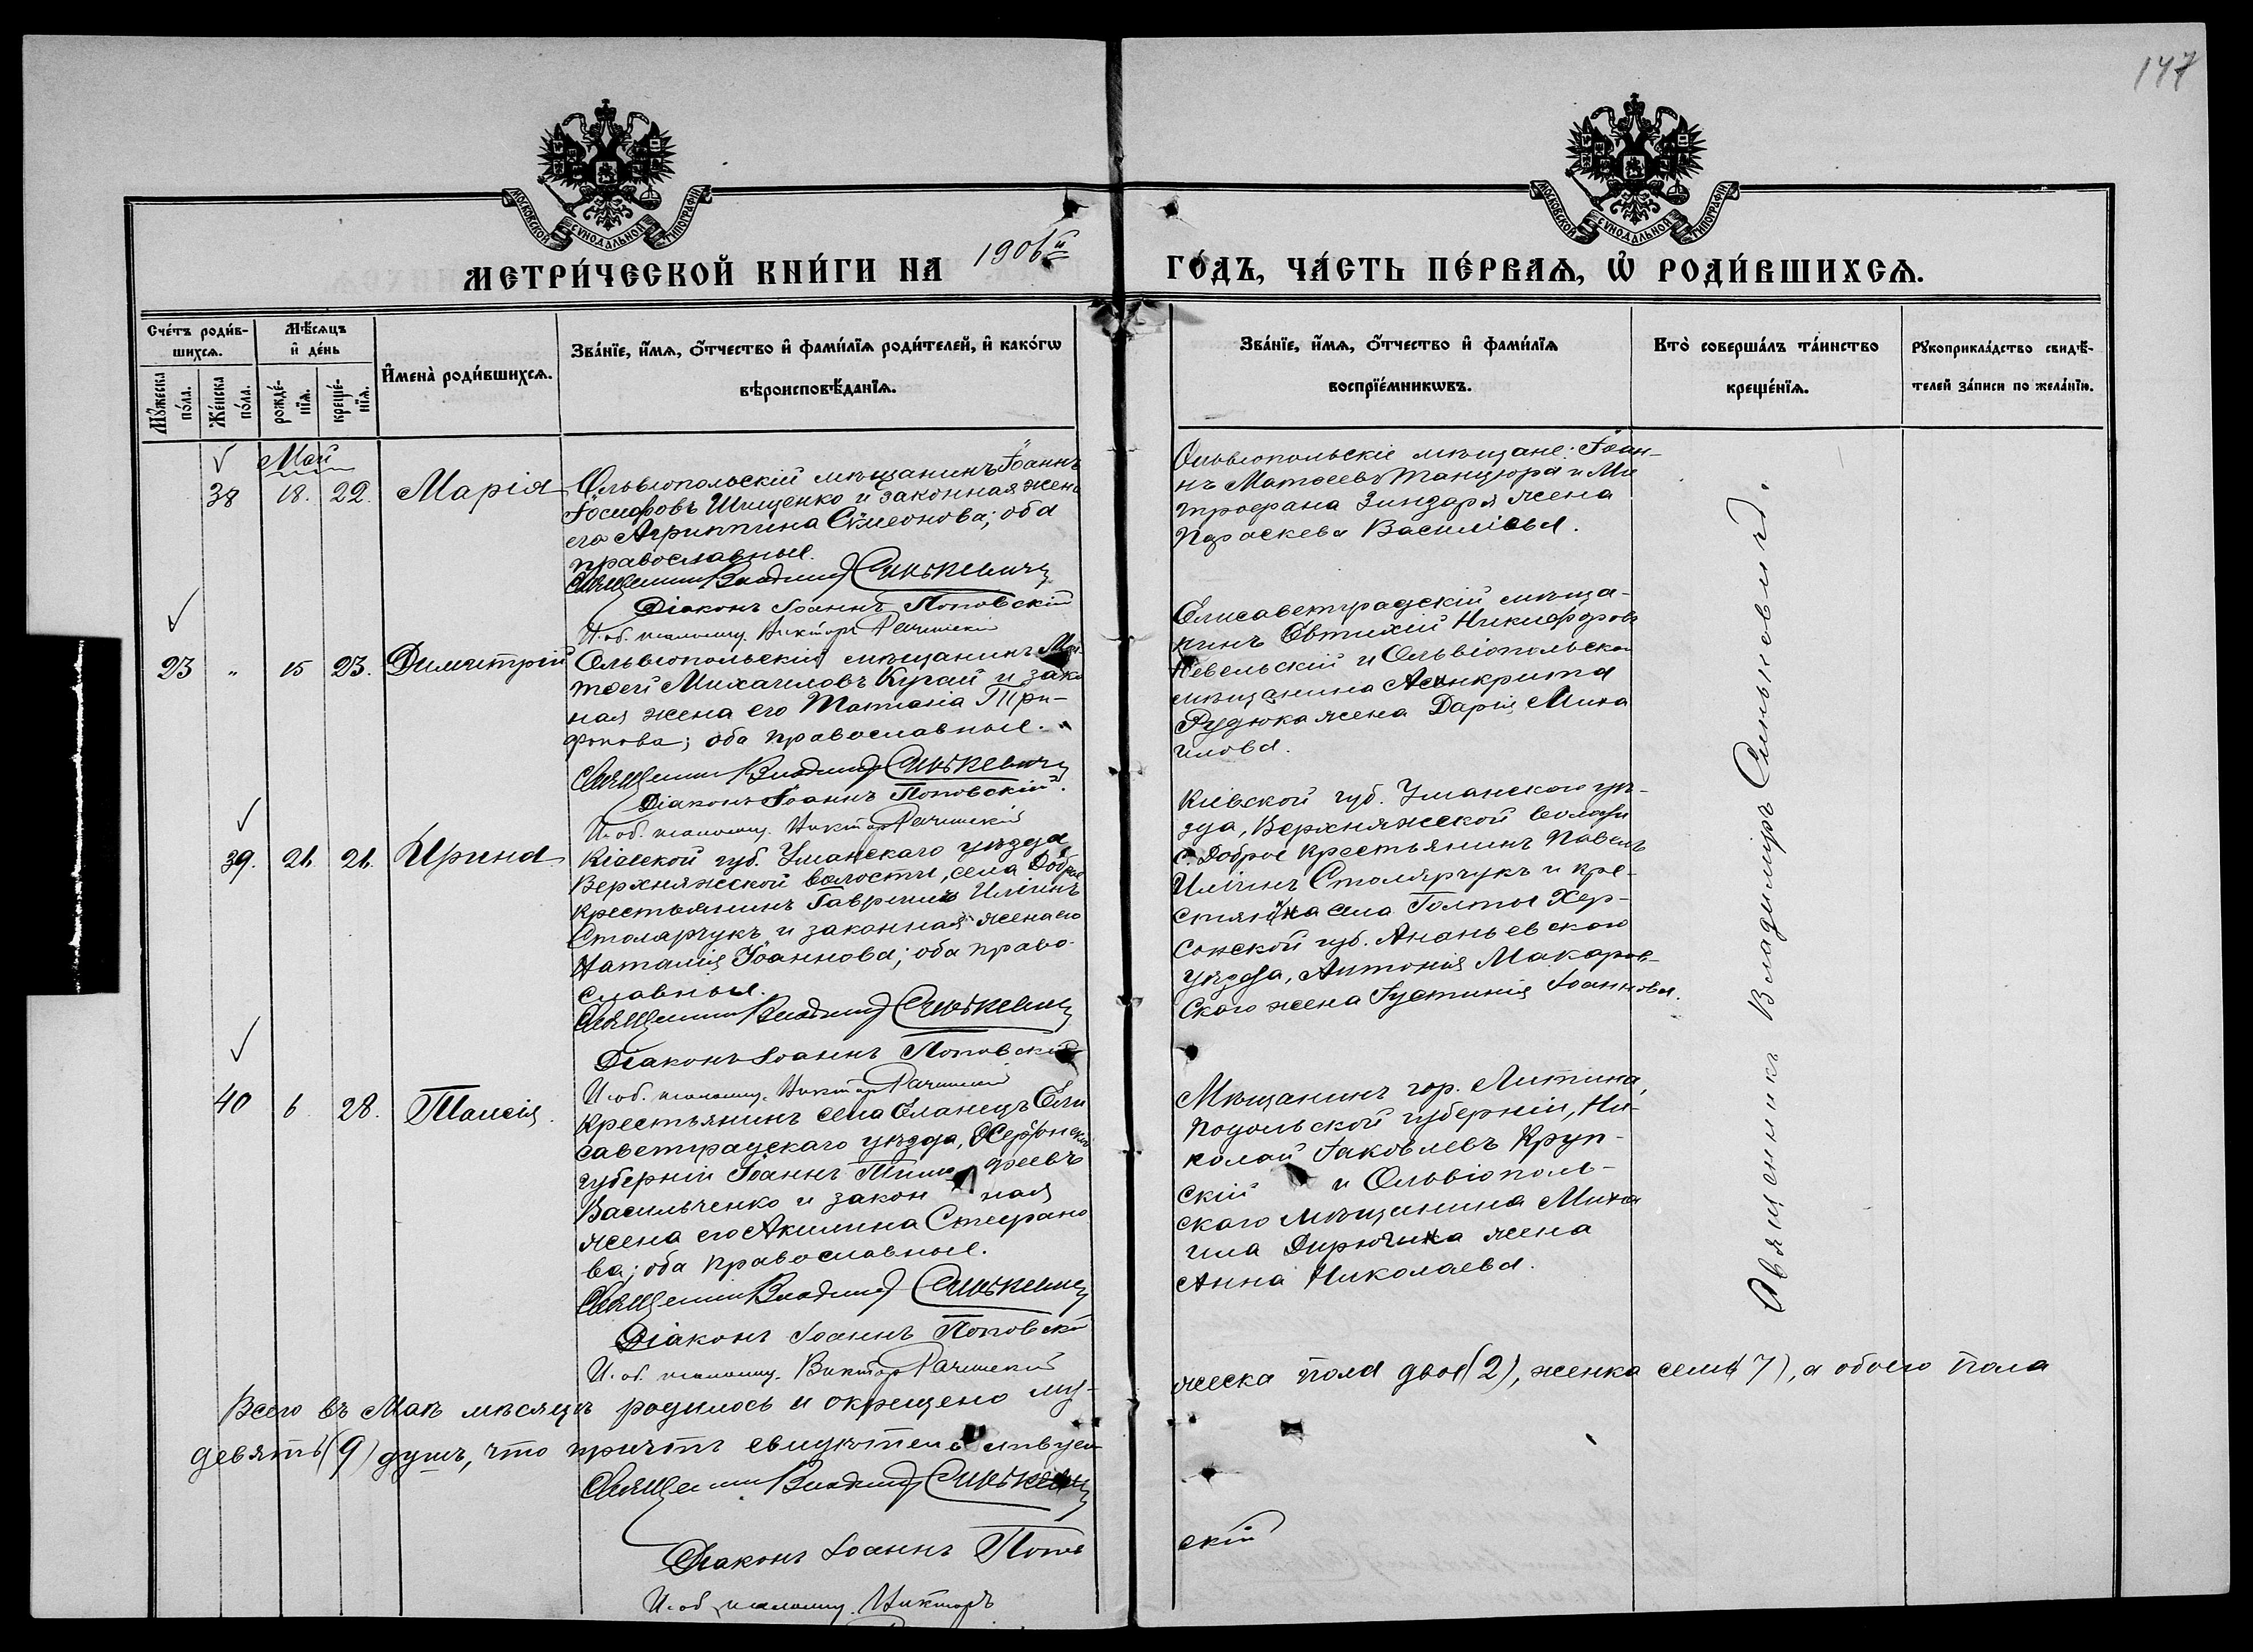 147
МОСКОВСКОЙ СѴНОДАЛЬНОЙ ТИПОГРАФІИ
МОСКОВСКОЙ СѴНОДАЛЬНОЙ ТИПОГРАФІИ
МЕТРИ́ЧЕСКОЙ КНИ́ГИ НА 1906й ГО́ДЪ, ЧА́СТЬ ПЕ́РВАЯ, Ѡ҆ РОДИ́ВШИХСЯ.
Сче́тъ роди́в-
шихся.
Мꙋ́жеска по́ла.
Же́нска по́ла.
Мѣ́сяцъ и҆ де́нь
рожде́-
нїя.
креще́-
нїя.
И҆мена̀ роди́вшихся.
Зва́нїе, и҆́мя, ѻ҆́тчество и҆ фами́лїя роди́телей, и҆ како́гѡ
вѣроисповѣ́данїя.
Зва́нїе, и҆́мя, ѻ҆́тчество и҆ фами́лїя
воспрїе́мникѡвъ.
Кто̀ соверша́лъ та́инство
креще́нїя.
Рꙋкоприкла́дство свидѣ́-
телей за́писи по жела́нїю.
Май
38 18. 22. Марія
Ольвіопольскій мѣщанинъ Іоаннъ
Іосифовъ Шищенко и законная жена
его Агриппина Сѵмеонова; оба
православные.
Священникъ Владимір Синькевичъ
Діаконъ Іоаннъ Поповскій
И. об. псаломщ. Викторъ Рачинскій
Ольвіопольскіе мѣщане: Іоан-
нъ Матѳеевъ Танцюра и Ми
трофана Зиндаря жена
Параскева Василіева.
23 " 15 23. Димитрій
Ольвіопольскій мѣщанинъ Мат
ѳей Михаиловъ Кугай и зако
ная жена его Татіана Три-
фонова; оба православные.
Священникъ Владимір Синькевичъ
Діаконъ Іоаннъ Поповскій.
И. об. псаломщ. Викторъ Рачинскій
Елисаветградскій мѣща-
нинъ Евтихій Никифоровъ
Невельскій и Ольвіопольска
мѣщанина Асинкрита
Рудюка жена Дарія Миха
илова.
39. 21. 21. Ирина
Кіевской губ. Уманскаго уѣзда
Верхняжской волости, села Добрае
крестьянинъ Гавріилъ Иліинъ
Столярчукъ и законная жена его
Наталія Іоаннова; оба право-
славные.
Священникъ Владимір Синькевичъ
Діаконъ Іоаннъ Поповскій
И. об. псаломщ. Викторъ Рачинскій
Кіевской губ. Уманскаго уѣ-
зда, Верхняжской волости
с. Доброе крестьянинъ Павелъ
Иліинъ Столярчукъ и кре-
стянина села Голты Хер-
сонской губ. Ананьевскаго
уѣзда, Антонія Макаров-
скаго жена Іустинія Іоаннова.
40 6. 28. Таисія.
Крестьянинъ села Еланецъ Ели
саветградскаго уѣзда, Херсонской
губерніи Іоаннъ Тимофеевъ
Васильченко и законная
жена его Акилина Стефано
ва; оба православные.
Священникъ Владимір Синькевичъ
Діаконъ Іоаннъ Поповскі
И. об. псаломщ. Викторъ Рачинскій
Мѣщанинъ гор. Литина,
Подольской губерніи, Ни-
колай Іаковлевъ Круп-
скій и Ольвіополь-
скаго мѣщанина Миха
ила Дирючика жена
Анна Николаева.
Священникъ Владиміръ Синькевичъ.
Всего въ Маѣ мѣсяцѣ родилось и окрещено му-
жеска пола двое (2), женка семь (7), а обоего пола
девять (9) душъ, что причтъ свидѣтельствуе
Священникъ Владимір Синькевичъ
Діаконъ Іоаннъ Попов
скій
И. об. псаломщ. Викторъ